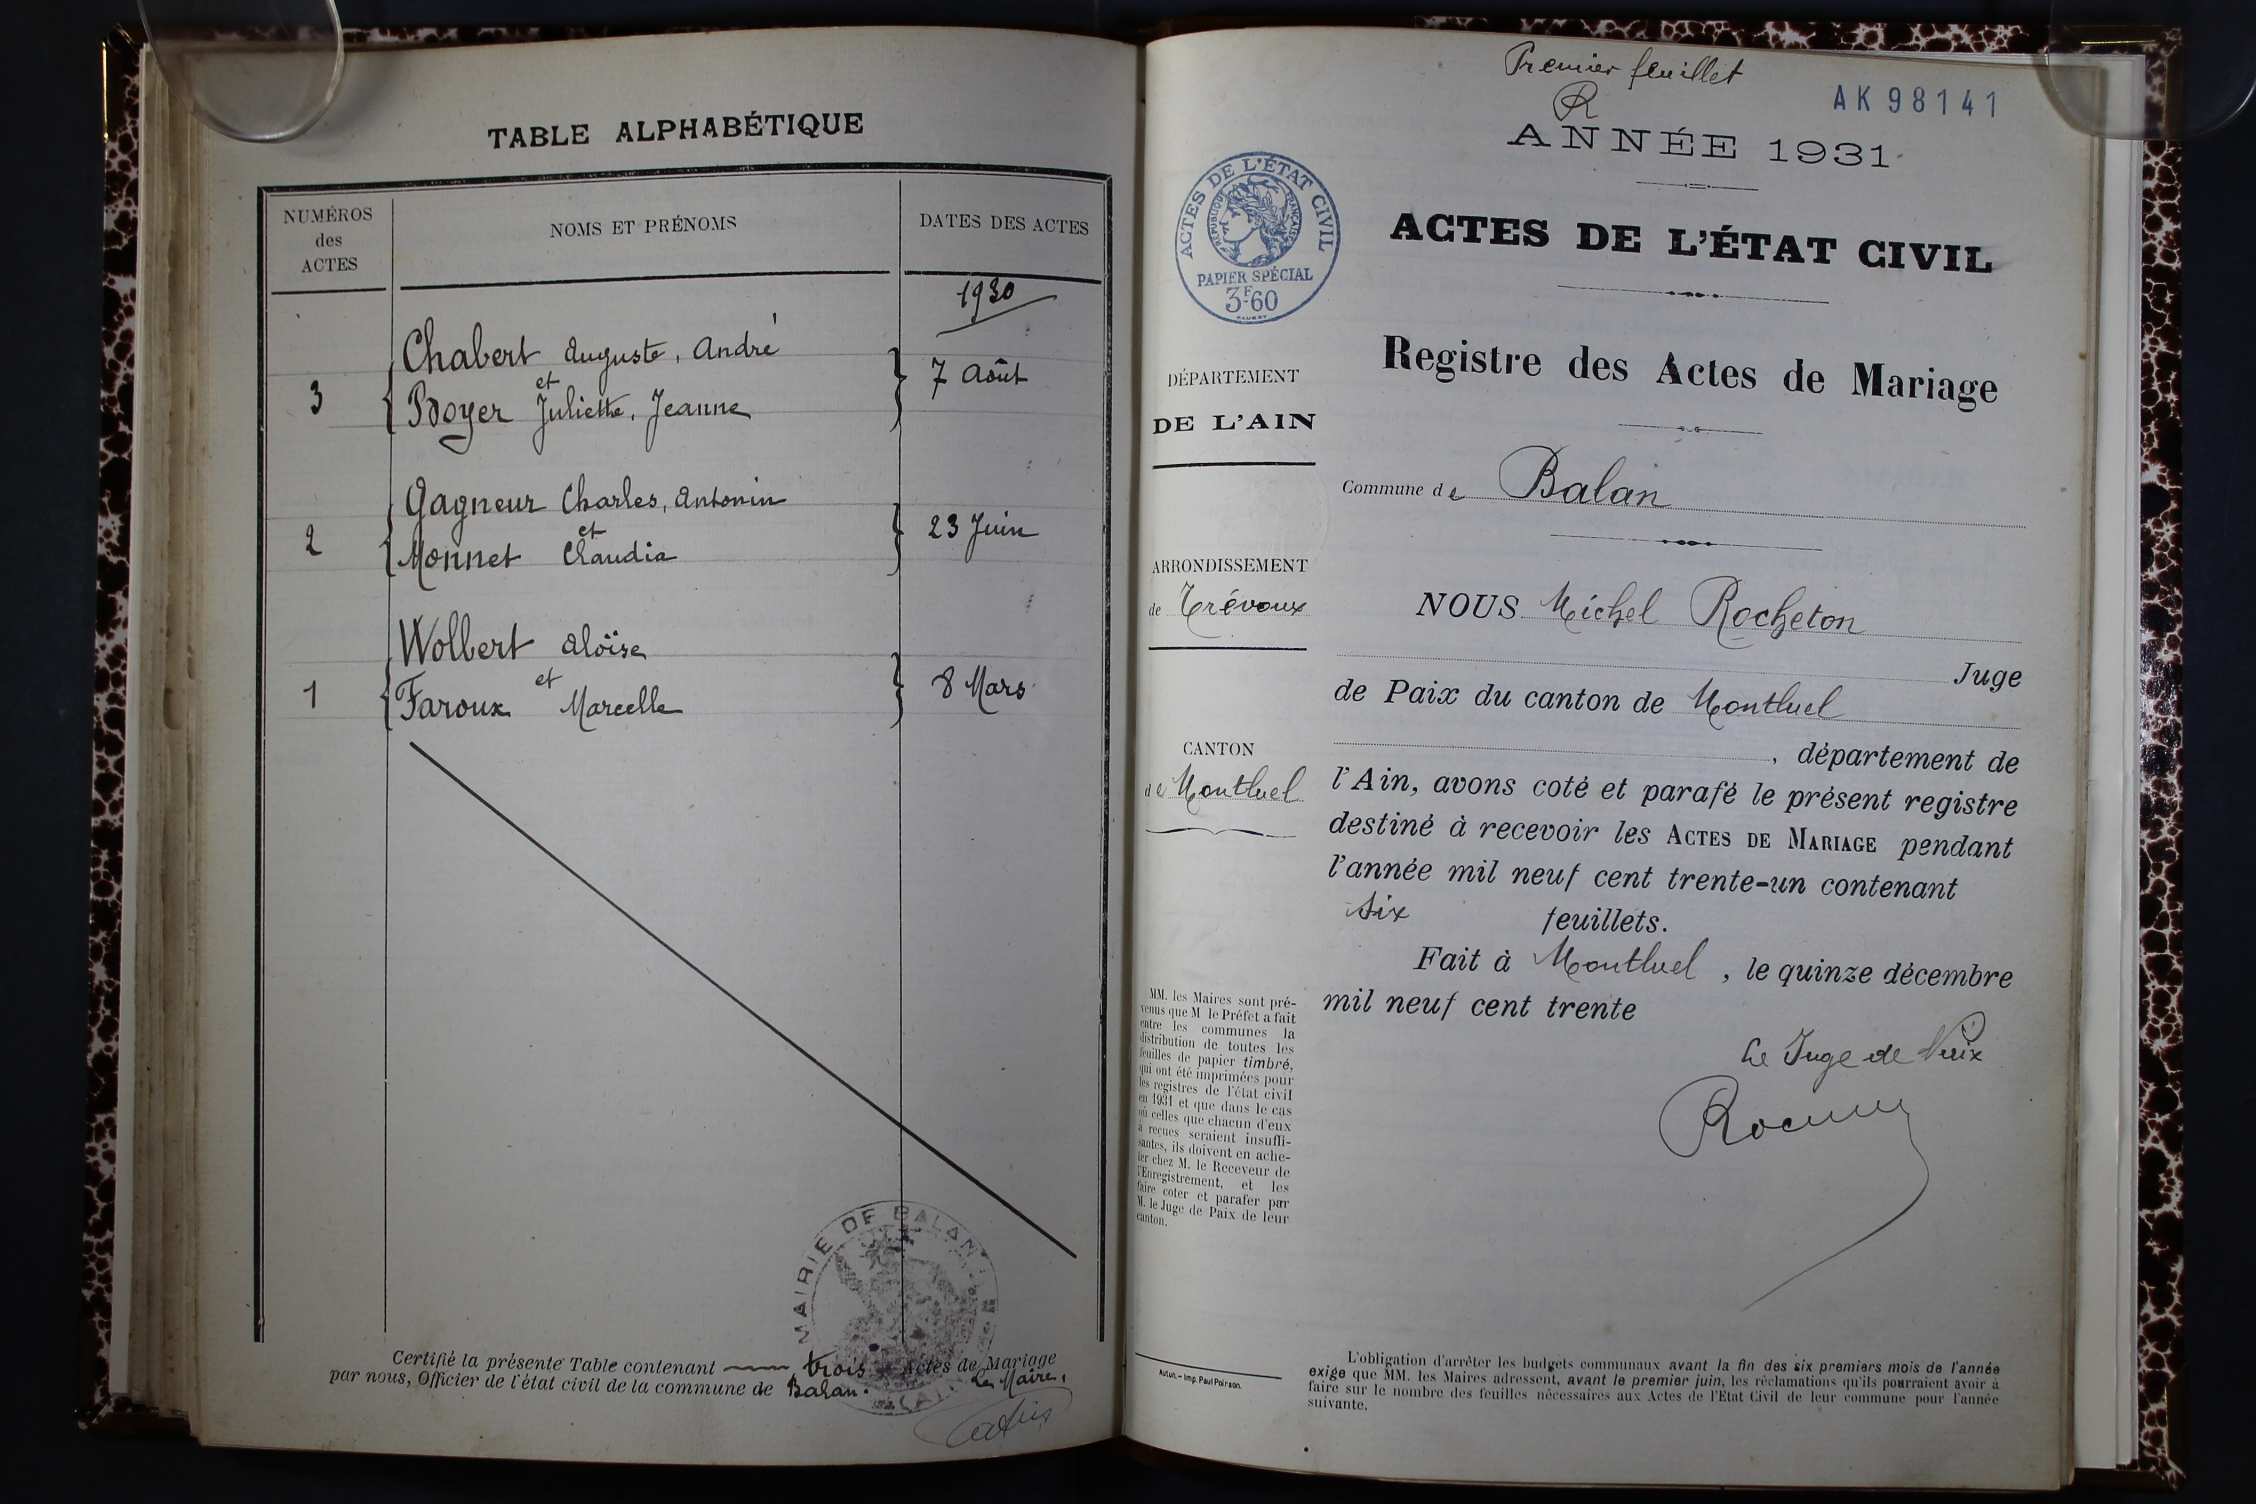 TABLE ALPHABÉTIQUE
NUMÉROS
des
ACTES
NOMS ET PRÉNOMS
DATES DES ACTES
1930
3
Chabert Auguste, André
et
Boyer Juliette, Jeanne
7 Août
2
Gagneur Charles, Antonin
et
Monnet Claudia
23 Juin
1
Wolbert Aloïse
et
Faroux Marcelle
8 Mars
MAIRIE DE BALAN
Certifié la présente Table contenant trois Actes de Mariage
par nous, Officier de l'état civil de la commune de Balan.
Le Maire,
Premier feuillet
R
AK 98141
ANNÉE 1931
ACTES DE L'ÉTAT CIVIL
RÉPUBLIQUE FRANÇAISE
PAPIER SPÉCIAL
3F60
ACTES DE L'ÉTAT CIVIL
Registre des Actes de Mariage
DÉPARTEMENT
DE L'AIN
Commune de Balan
ARRONDISSEMENT
de Trévoux
NOUS Michel Rocheton
Juge
de Paix du canton de Montluel
CANTON
de Montluel
, département de
l'Ain, avons coté et parafé le présent registre
destiné à recevoir les ACTES DE MARIAGE pendant
l'année mil neuf cent trente-un contenant
six feuillets.
Fait à Montluel, le quinze décembre
mil neuf cent trente
Le Juge de Paix
MM. les Maires sont pré-
venus que M le Préfet a fait
entre les communes la
distribution de toutes les
feuilles de papier timbré,
qui ont été imprimées pour
les registres de l'état civil
en 1931 et que dans le cas
où celles que chacun d'eux
a reçues seraient insuffi-
santes, ils doivent en ache-
ter chez M. le Receveur de
l'Enregistrement, et les
faire coter et parafer par
M. le Juge de Paix de leur
canton.
Autun. – Imp. Paul Poirson.
L'obligation d'arrêter les budgets communaux avant la fin des six premiers mois de l'année
exige que MM. les Maires adressent, avant le premier juin, les réclamations qu'ils pourraient avoir à
faire sur le nombre des feuilles nécessaires aux Actes de l'Etat Civil de leur commune pour l'année
suivante.